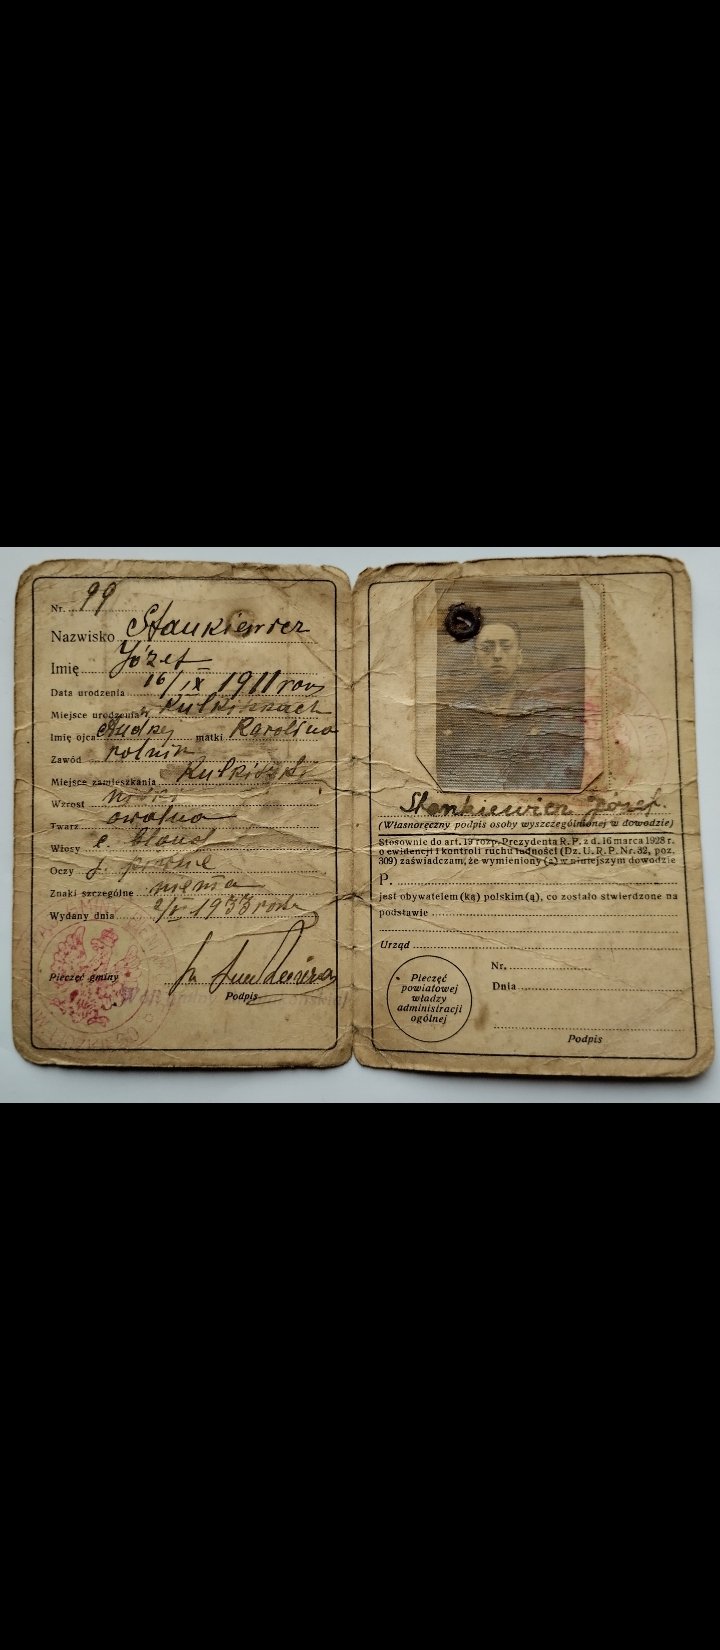 Nr. 99
Nazwisko Stankiewicz
Imię Józef
Data urodzenia 16/IX 1911 roku
Miejsce urodzenia w Kulkiszkach
Imię ojca Andrzej matki Karolina
Zawód rolnik
Miejsce zamieszkania Kulkiszki
Wzrost niski
Twarz owalna
Włosy c. blond
Oczy j. piwne
Znaki szczególne niema
Wydany dnia 1933 roku
Pieczęć gminy
Podpis
Stankiewicz Józef.
(Własnoręczny podpis osoby wyszczególnionej w dowodzie)
Stosownie do art. 19 rozp. Prezydenta R. P. z d. 16 marca 1928 r.
o ewidencji i kontroli ruchu ludności (Dz. U. R. P. Nr. 32, poz.
309) zaświadczam, że wymieniony (a) w niniejszym dowodzie
P.
jest obywatelem (ką) polskim (ą), co zostało stwierdzone na
podstawie
Urząd
Pieczęć
powiatowej
władzy
administracji
ogólnej
Nr.
Dnia
Podpis